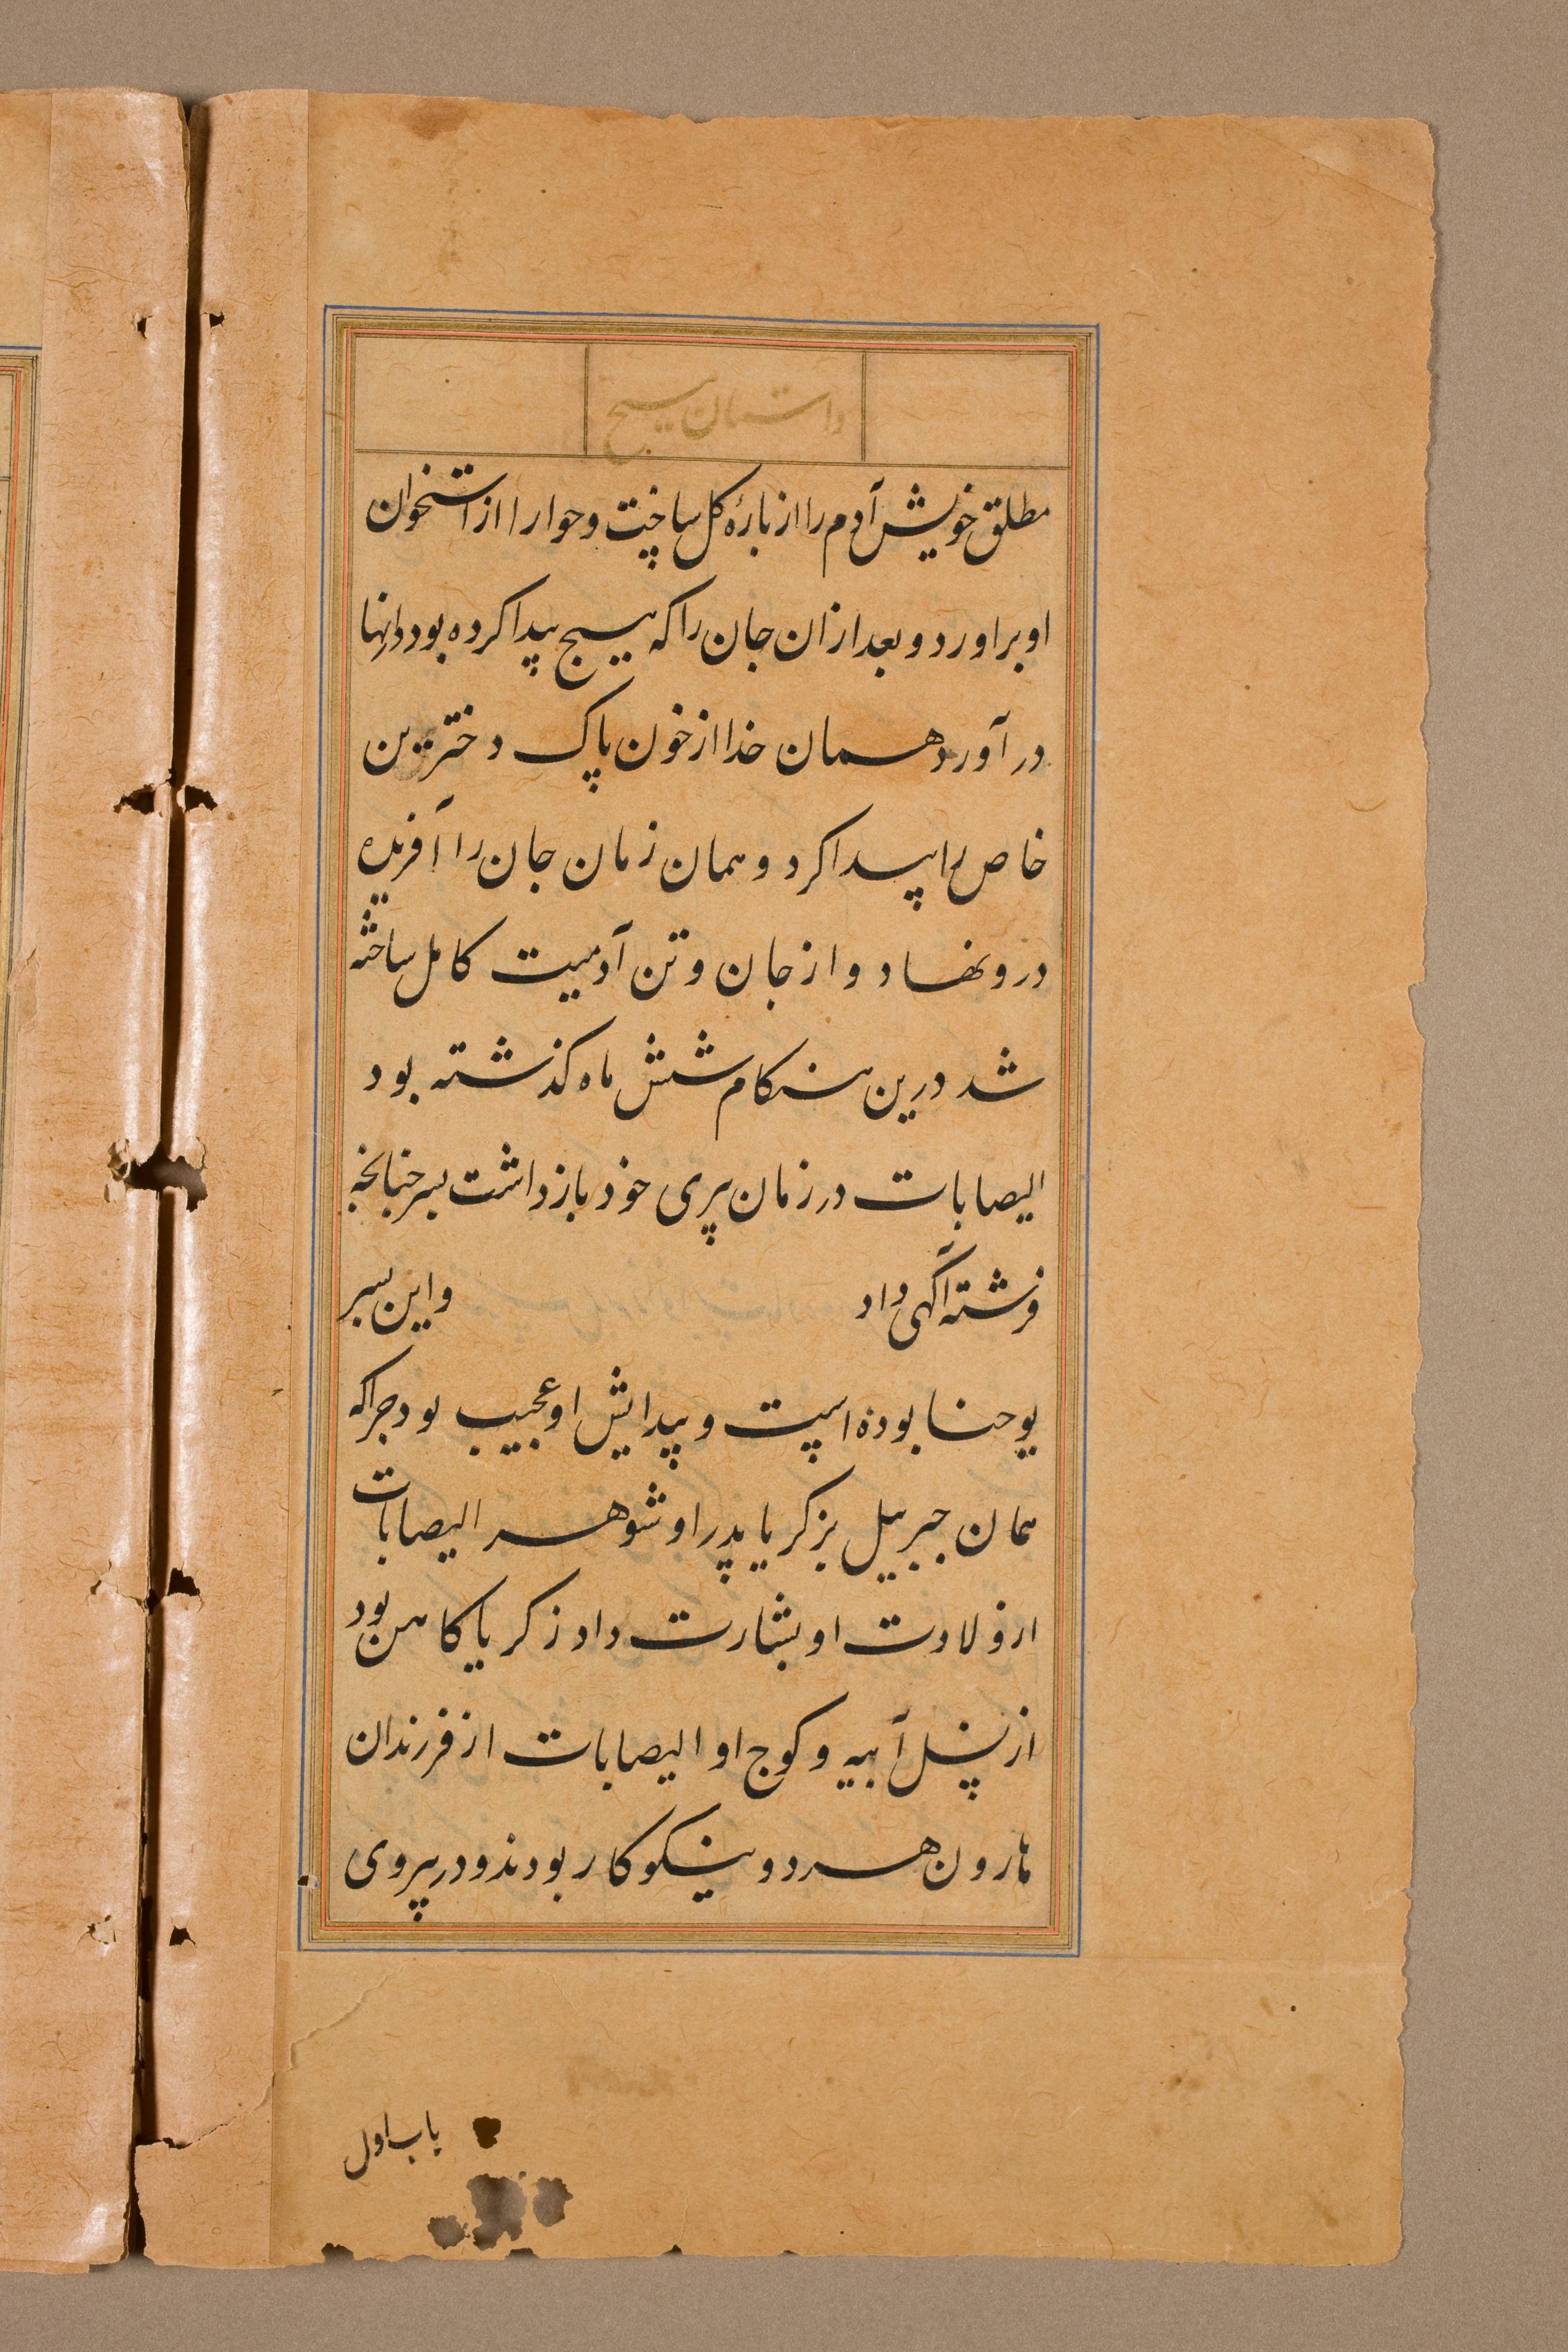 داستان مسیح
مطلق خویش آدم را از بارهٔ کل ساخت و حوا را از استخوان
او براورد و بعد ازان جان را که هیچ پیدا کرده بود درانها
در آورد همان خدا از خون پاک دختر تن
خاص را پیدا کرد و همان زمان جان را آفریده
درو نهاد و از جان و تن آدمیت کامل ساخته
شد درین هنکام شش ماه کذشته بود
الیصابات در زمان پیری خود باز داشت بسر جنانجه
فرشته آگهی داد و این بسر
یوحنا بوده است و پیدایش او عجیب بود جراکه
همان جبرییل بزکریا پدر او شوهر الیصابات
از ولادت او بشارت داد زکریا کاهن بود
از نسل آبیه و کوج او الیصابات از فرزندان
هارون هر دو نیکوکار بودند و در پیروی
باب اول